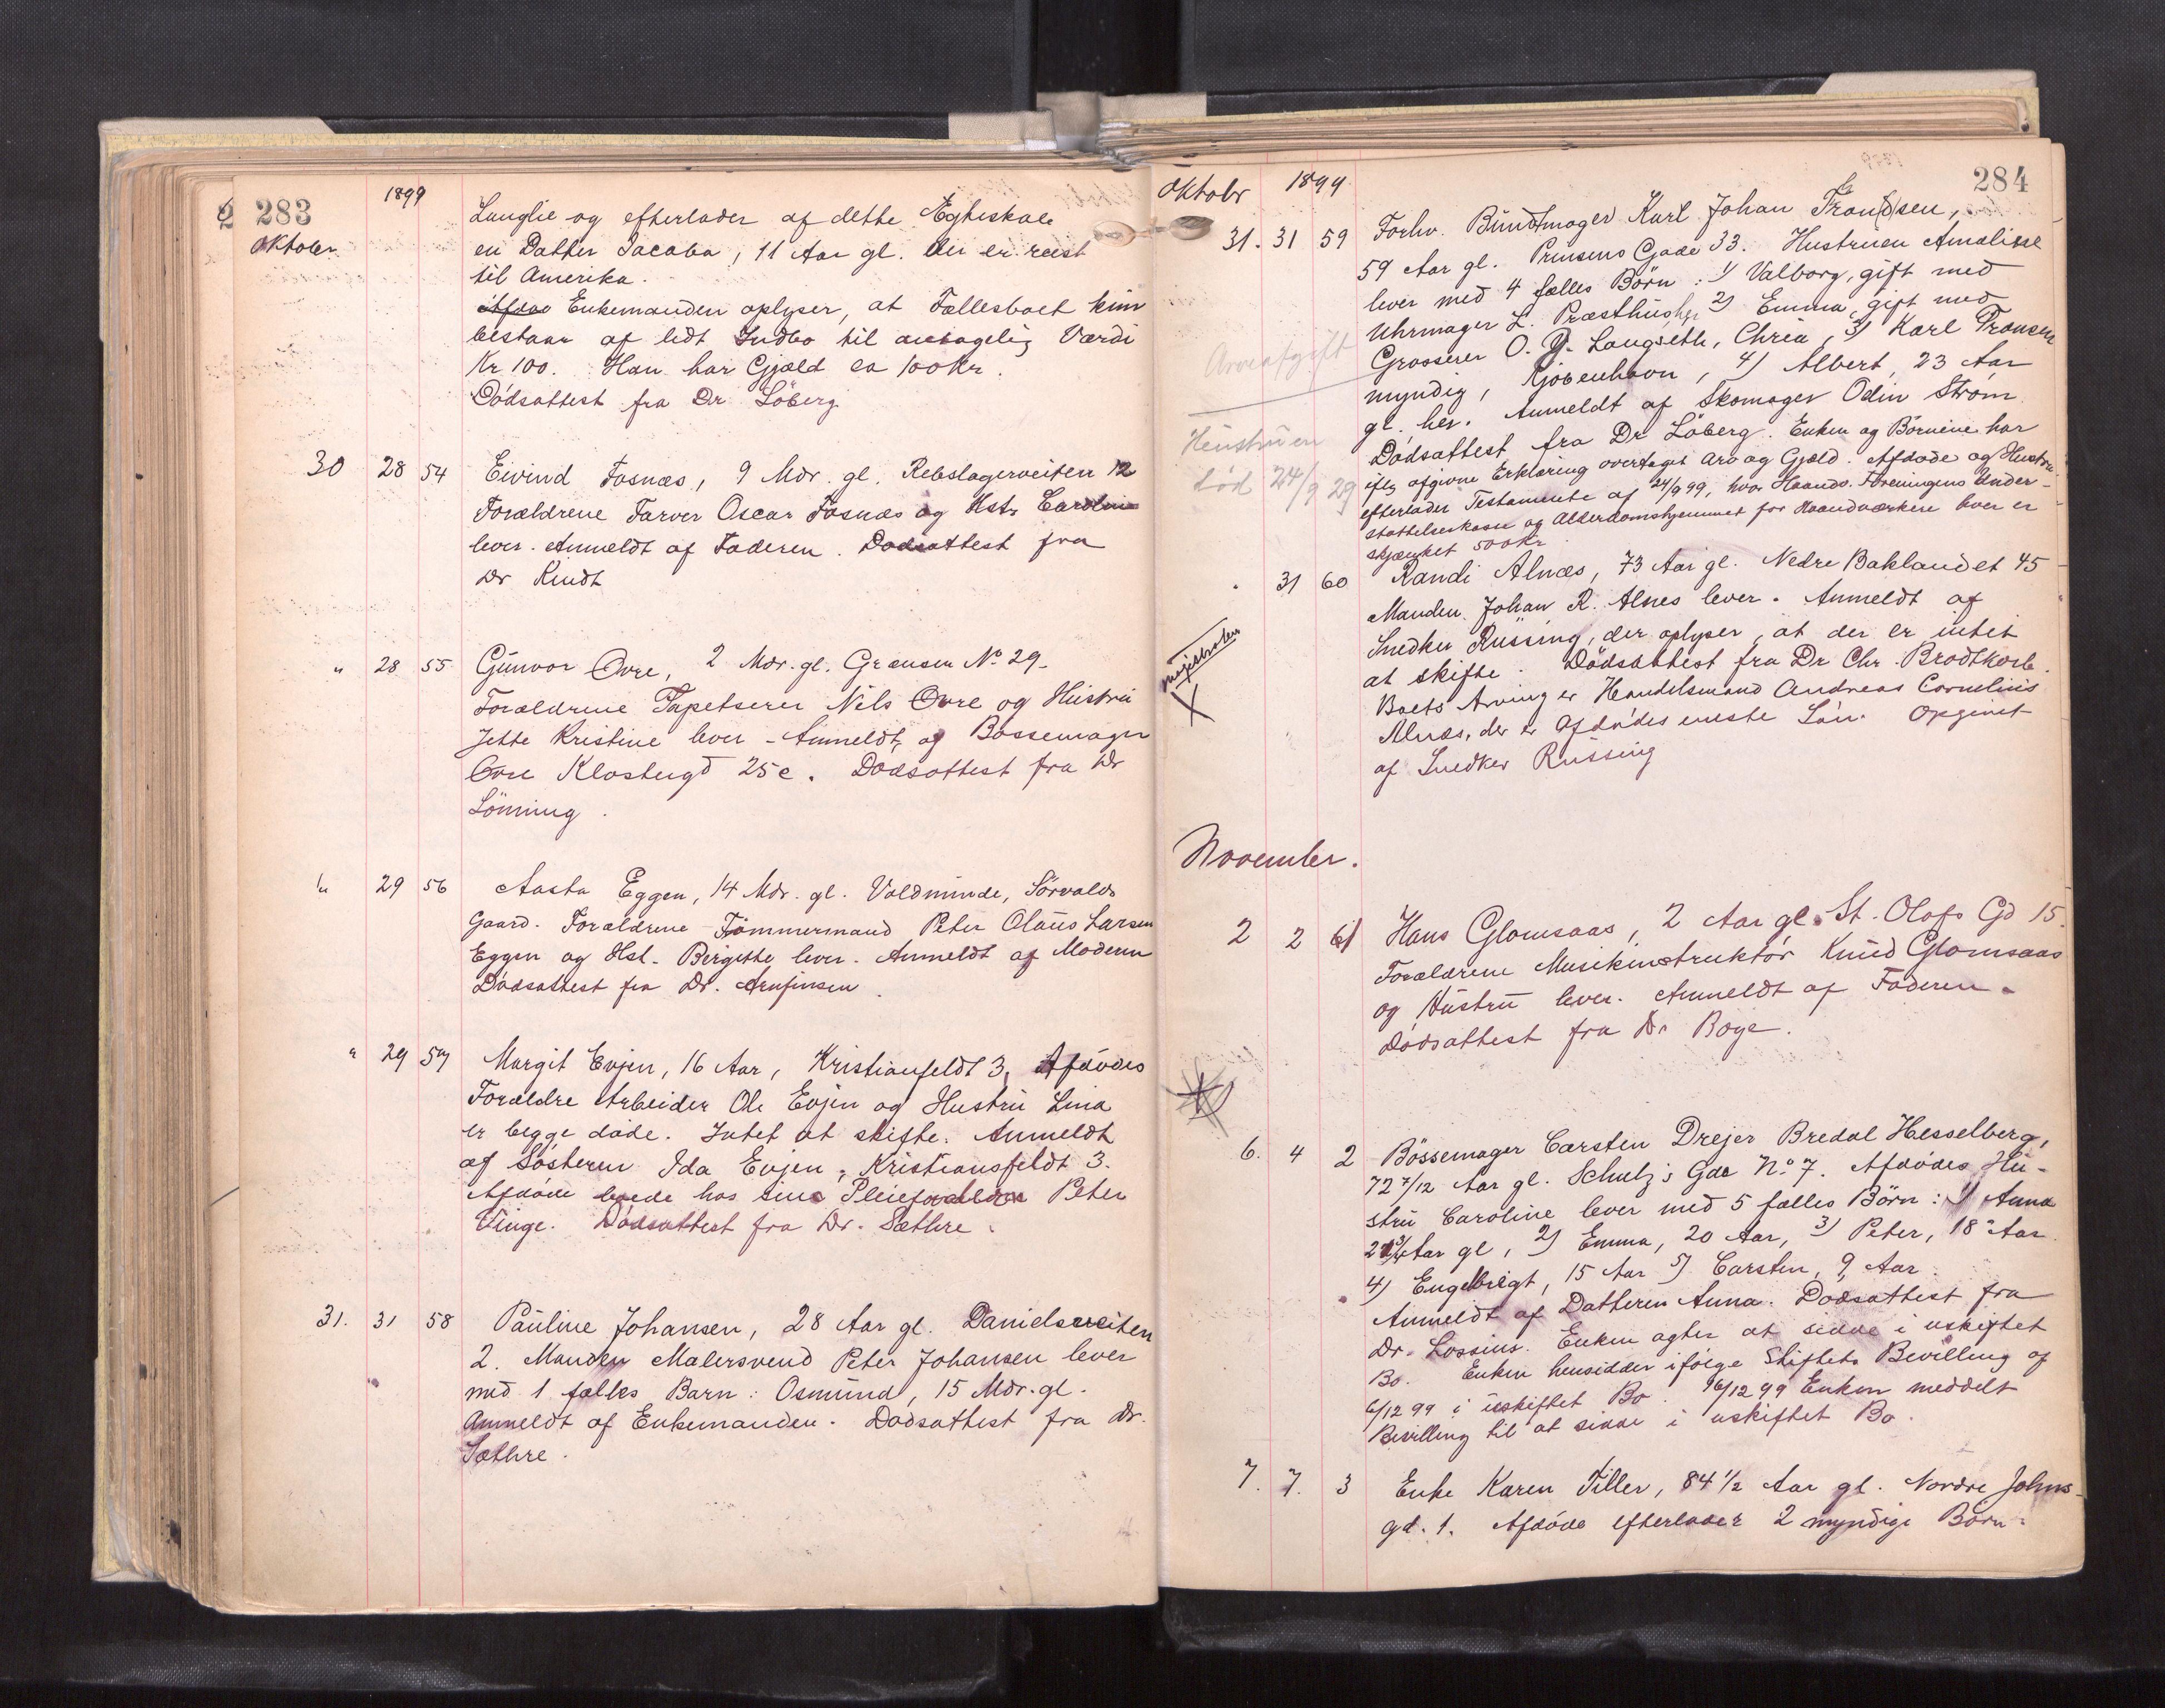 283
1899
Oktober
Langlie og efterlader af dette Egteskab
en Datter Jacoba, 11 Aar gl. der er reist
til Amerika.
Enkemanden oplyser, at Fællesboet kun
bestaar af lidt Indbo til antagelig Værdi
Kr 100. Han har Gjæld ca 100 Kr.
Dödsattest fra Dr Löberg
30 28 54 Eivind Fosnæs, 9 Mdr. gl. Rebslagerveiten 12
Forældrene Farver Oscar Fosnæs og Hstr Caroline
lever. Anmeldt af Faderen. Dödsattest fra
Dr Kindt
" 28 55 Gunvor Ovre, 2 Mdr. gl. Grænsen No 29.
Forældrene Tapetserer Nils Ovre og Hustru
Jette Kristine lever - Anmeldt af Bössemager
Ovre Klostergd 25 c. Dödsattest fra Dr
Lönning.
" 29 56 Aasta Eggen, 14 Mdr. gl. Voldminde, Sörvalds
Gaard. Forældrene Tömmermand Peter Olaus Larsen
Eggen og Hst. Birgitte lever. Anmeldt af Moderen
Dödsattest fra Dr. Arnfinsen.
" 29 57 Margit Evjen, 16 Aar, Kristianfeldt 3, Afdödes
Forældre Arbeider Ole Evjen og Hustru Lina
er begge döde. Intet at skifte. Anmeldt
af Sösteren Ida Evjen, Kristiansfeldt 3.
Afdöde boede hos sine Pleieforældre Peter
Vinge. Dödsattest fra Dr. Sæthre.
31. 31 58 Pauline Johansen, 28 Aar gl. Danielsveiten
2. Manden Malersvend Peter Johansen lever
med 1 fælles Barn: Osmund, 15 Mdr. gl.
Anmeldt af Enkemanden. Dödsattest fra Dr.
Sæthre.
284
Oktobr 1899
31. 31 59 Forhv. Bundtmager Karl Johan Tron(d)sen,
59 Aar gl. Prinsens Gade 33. Hustruen Amalisse
lever med 4 fælles Börn: 1) Valborg, gift med
Uhrmager L. Præsthus, her, 2) Emma, gift med
Grosserer O. Langseth, Chria, 3) Karl Tronsen
myndig, Kjöbenhavn, 4) Albert, 23 Aar
gl. her. Anmeldt af Skomager Odin Ström.
Dödsattest fra Dr Löberg. Enken og Börnene har
iflg afgivne Erklæring overtaget Arv og Gjæld. Afdöde og Hustru
efterlader Testamente af 24/9 99, hvor Haandv. Foreningens Under-
stöttelseskasse og Alderdomshjemmet for Haandværkere hver er
skjænket 500 Kr
Arveafgift
Hustruen
död 24/9 29
" 31 60 Randi Alnæs, 73 Aar gl. Nedre Baklandet 45
Manden Johan R. Alnes lever. Anmeldt af
Snedker Russing, der oplyser, at der er intet
at skifte. Dödsattest fra Dr Chr. Brodtkorb.
Boets Arving er Handelsmand Andreas Cornelius
Alnæs, der er Afdödes eneste Sön. Opgivet
af Snedker Russing
Magistraten
X
November.
2 2 61 Hans Glomsaas, 2 Aar gl. St. Olafs Gd 15.
Forældrene Musikinstruktör Knud Glomsaas
og Hustru lever. Anmeldt af Faderen.
Dödsattest fra Dr Boye.
6. 4 2 Bössemager Carsten Drejer Bredal Hesselberg,
72 7/12 Aar gl. Schulz's Gde No 7. Afdödes Hu-
stru Caroline lever med 5 fælles Börn: 1) Anna
Aar gl, 2) Emma, 20 Aar, 3) Peter, 18 Aar
4) Engelbregt, 15 Aar 5) Carsten, 9 Aar.
Anmeldt af Datteren Anna. Dödsattest fra
Dr. Lossius. Enken agter at sidde i uskiftet
Bo. Enken hensidder ifölge Skiftets Bevilling af
6/12 99 i uskiftet Bo. 16/12 99 Enken meddelt
Bevilling til at sidde i uskiftet Bo.
7. 7. 3 Enke Karen Tiller, 84 1/2 Aar gl. Nordre Johns-
gd. 1. Afdöde efterlader 2 myndige Börn.